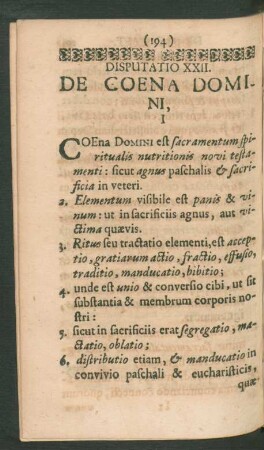 (194)
DISPUTATIO XXII.
DE COENA DOMI-
NI,
I
COEna DOMINI est sacramentum spi-
ritualis nutritionis novi testa-
menti: sicut agnus paschalis & sacri-
ficia in veteri.
2. Elementum visibile est panis & vi-
num: ut in sacrificiis agnus, aut vi-
ctima quævis.
3. Ritus seu tractatio elementi, est acce-
ptio, gratiarum actio, fractio, effusio,
traditio, manducatio, bibitio;
4. unde est unio & conversio cibi, ut sit
substantia & membrum corporis no-
stri:
5. sicut in sacrificiis erat segregatio, ma-
ctatio, oblatio;
6. distributio etiam, & manducatio in
convivio paschali & eucharisticis,
quæ